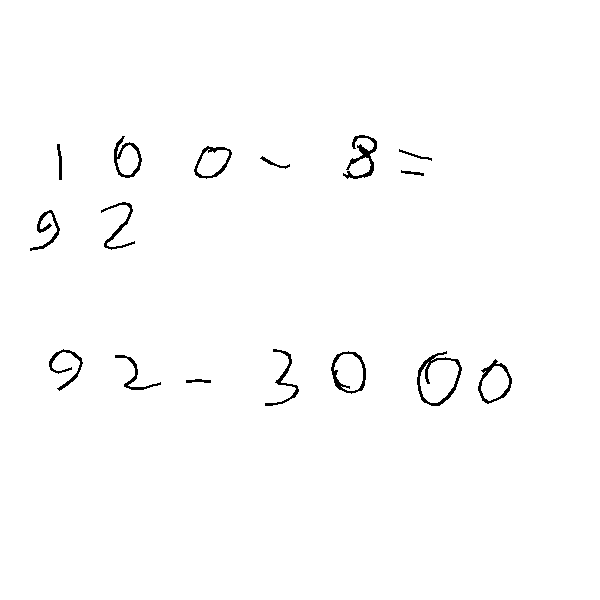 100-8=
92
92-3000